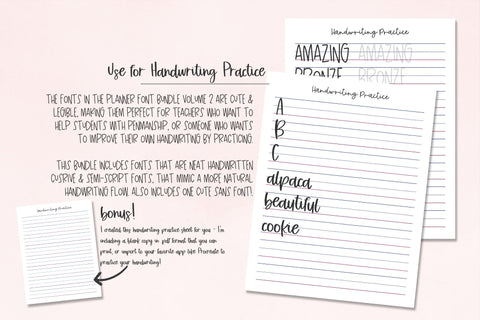 Use for Handwriting Practice
THE FONTS IN THE PLANNER FONT BUNDLE VOLUME 2 ARE CUTE &
LEGIBLE, MAKING THEM PERFECT FOR TEACHERS WHO WANT TO
HELP STUDENTS WITH PENMANSHIP, OR SOMEONE WHO WANTS
TO IMPROVE THEIR OWN HANDWRITING BY PRACTICING.
THIS BUNDLE INCLUDES FONTS THAT ARE NEAT HANDWRITTEN
CURSIVE & SEMI-SCRIPT FONTS, THAT MIMIC A MORE NATURAL
HANDWRITING FLOW. ALSO INCLUDES ONE CUTE SANS FONT!
Handwriting Practice
bonus!
I created this handwriting practice sheet for you - I'm
including a blank copy in .pdf format that you can
print, or import to your favorite app like Procreate to
practice your handwriting!
Handwriting Practice
AMAZING AMAZING
BRONZE BRONZE
Handwriting Practice
A
B
C
alpaca
beautiful
cookie